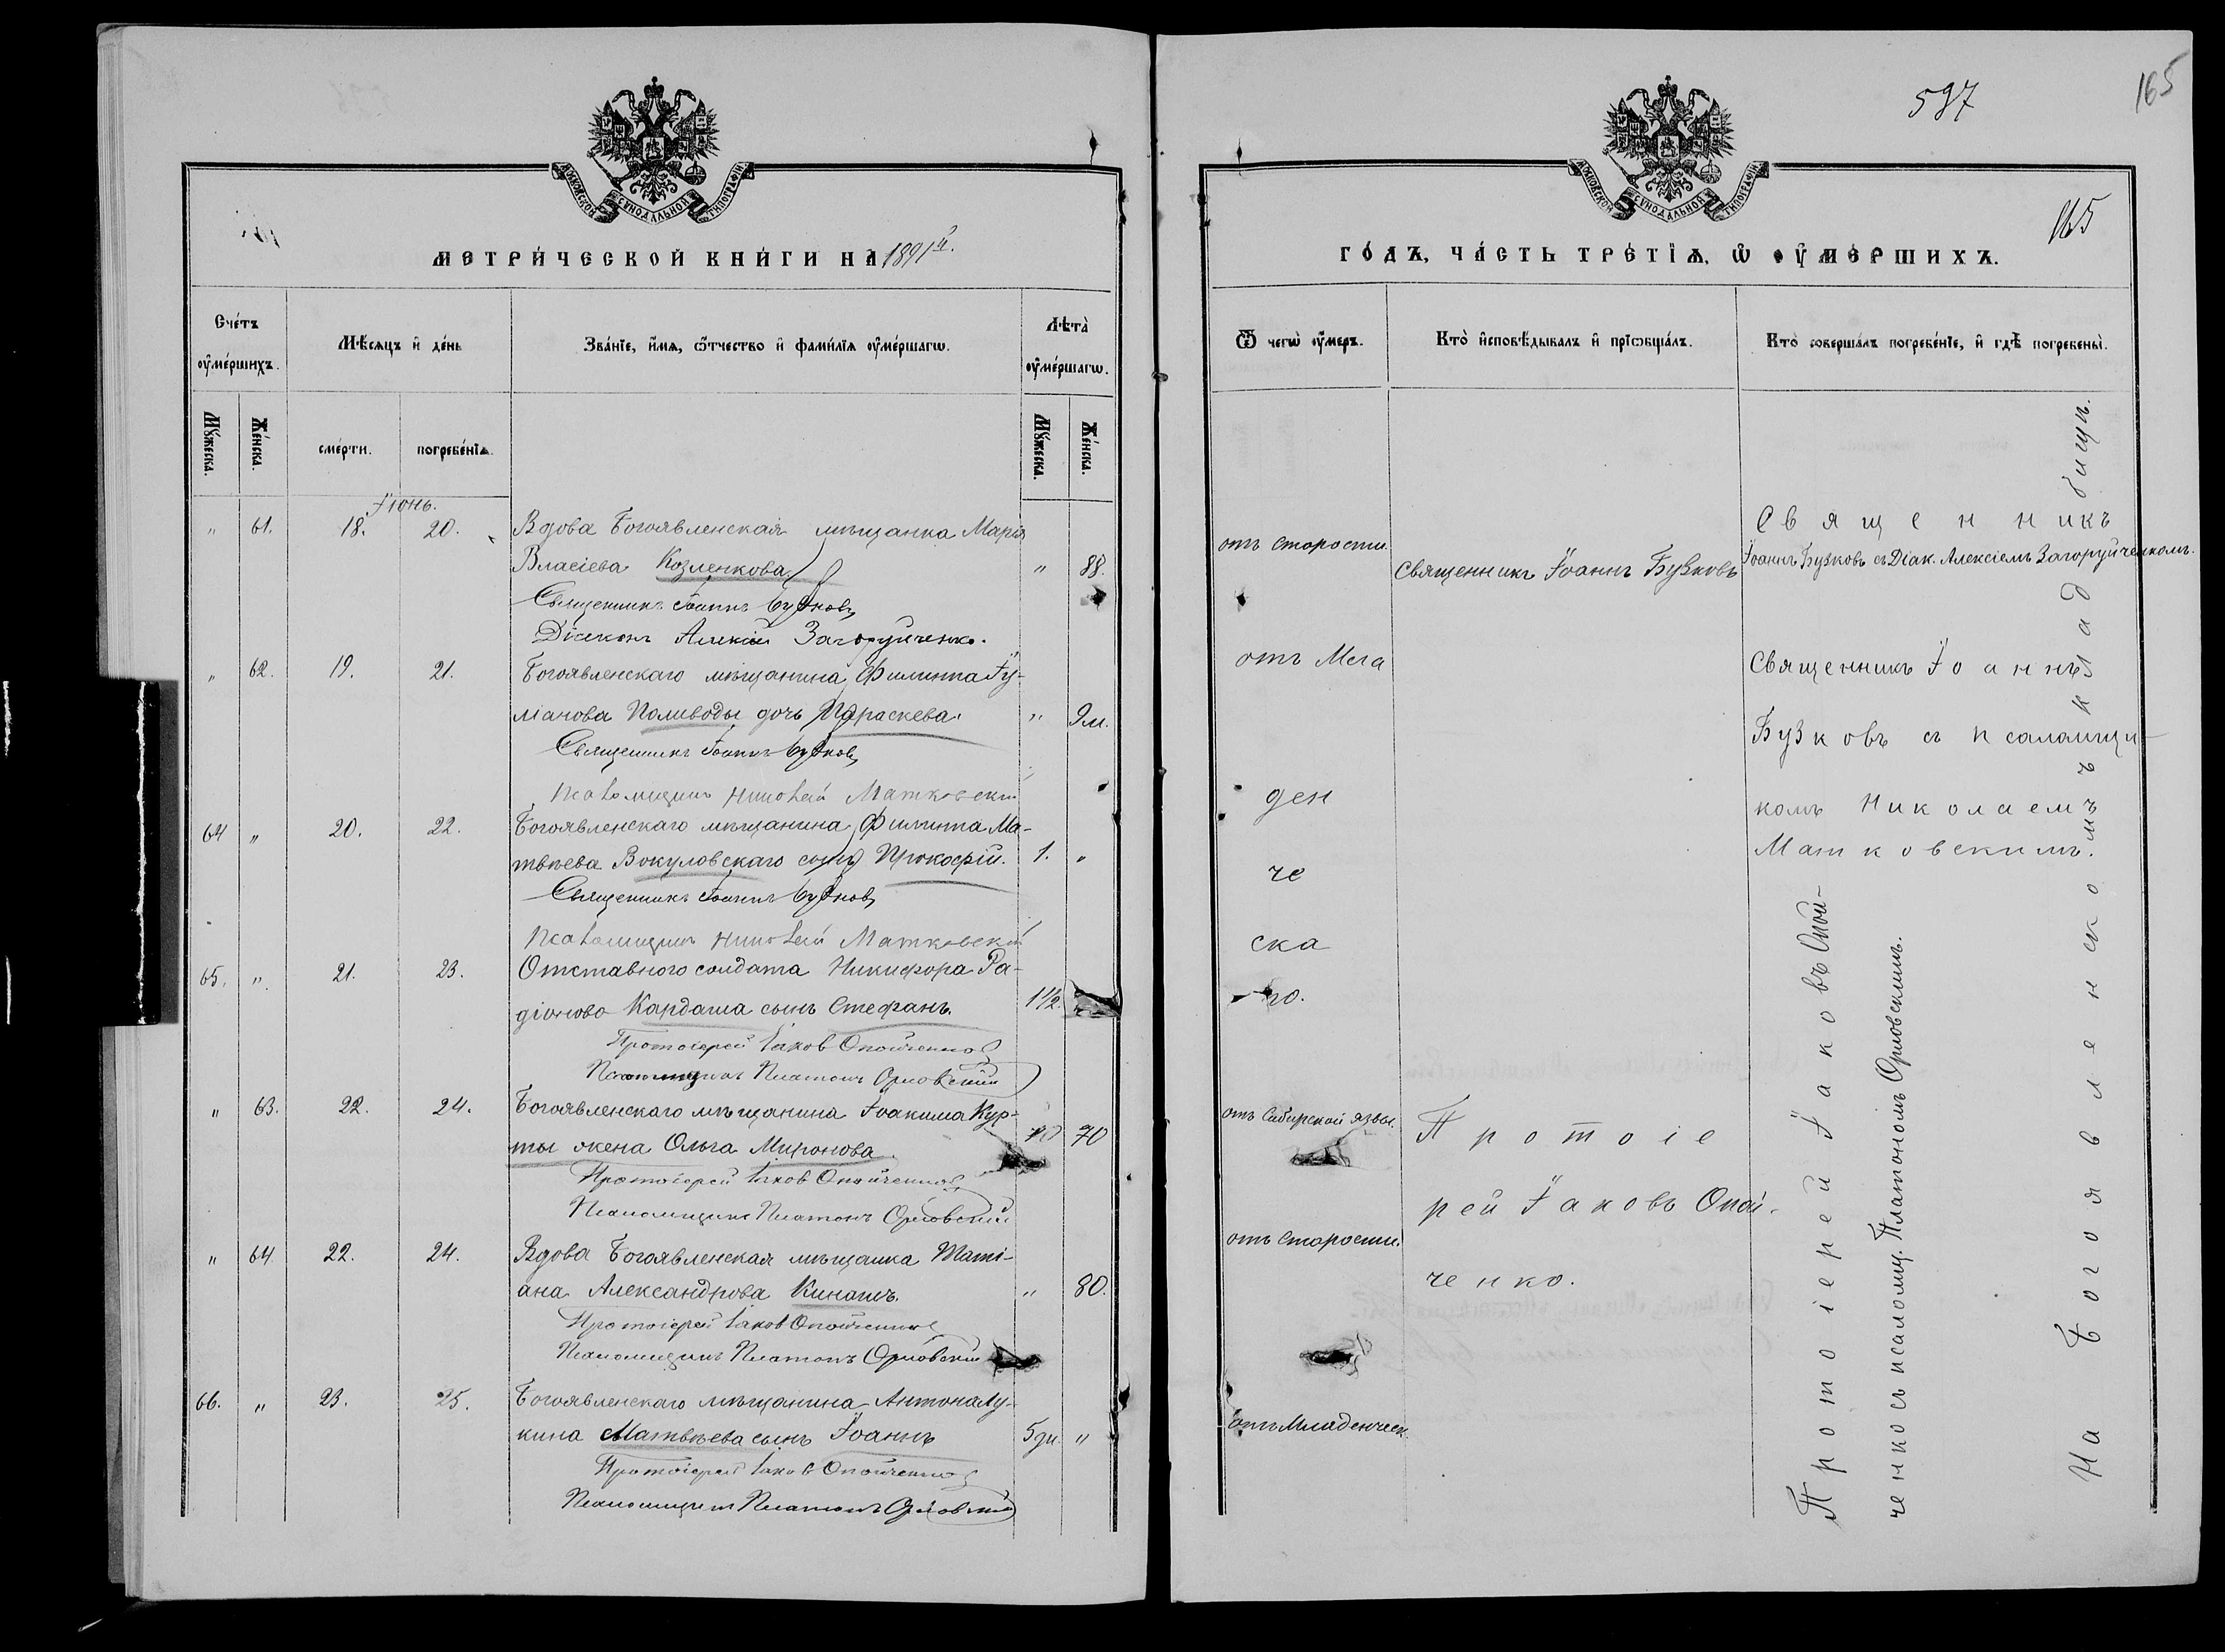 МОСКОВСКОЙ СѴНОДАЛЬНОЙ ТИПОГРАФІИ
МЕТРИ́ЧЕСКОЙ КНИ́ГИ НА 1891й.
Сче́тъ ᲂу҆ме́ршихъ.
Мѣ́сяцъ и҆ де́нь
Зва́нїе, и҆́мя, ѻ҆́тчество и҆ фами́лїя ᲂу҆ме́ршагѡ.
Лѣта̀ ᲂу҆ме́ршагѡ.
Мꙋ́жеска.
Же́нска.
сме́рти.
погребе́нїѧ.
Мꙋ́жеска.
Же́нска.
Іюнь.
" 61. 18. 20. Вдова Богоявленская мѣщанка Марія
Власіева Козленкова " 88.
Священникъ Іоаннъ Бузковъ
Діаконъ Алексій Загоруйченко.
" 62. 19. 21. Богоявленскаго мѣщанина Филиппа Іу-
ліанова Поливоды дочь Параскева. " 9 м.
Священникъ Іоаннъ Бузковъ
Псаломщикъ Николай Матковскій
64 " 20. 22. Богоявленскаго мѣщанина Филиппа Ма-
твѣева Вокуловскаго сынъ Прокофій. 1. "
Священникъ Іоаннъ Бузковъ
Псаломщикъ Николай Матковскій
65. " 21. 23. Отставного солдата Никифора Ра-
діонова Кардаша сынъ Стефанъ. 1½.
Протоіерей Іаковъ Опойченко
Псаломщикъ Платонъ Орловскій
" 63. 22. 24. Богоявленскаго мѣщанина Іоакима Кур-
ты жена Ольга Миронова. 70
Протоіерей Іаковъ Опойченко
Псаломщикъ Платонъ Орловскій
" 64. 22. 24. Вдова Богоявленская мѣщанка Таті-
ана Александрова Кинашъ. " 80.
Протоіерей Іаковъ Опойченко
Псаломщикъ Платонъ Орловскій
66. " 23. 25. Богоявленскаго мѣщанина Антона Лу-
кина Матвѣева сынъ Іоаннъ 5 дн. "
Протоіерей Іаковъ Опойченко
Псаломщикъ Платонъ Орловскій
165
597
165
МОСКОВСКОЙ СѴНОДАЛЬНОЙ ТИПОГРАФІИ
ГО́ДЪ, ЧА́СТЬ ТРЕ́ТЇѦ, Ѡ҆ ᲂУ҆МЕ́РШИХЪ.
Ѿ чегѡ̀ ᲂу҆́меръ.
Кто̀ и҆сповѣ́дывалъ и҆ прїѡбща́лъ.
Кто̀ соверша́лъ погребе́нїе, и҆ гдѣ̀ погребены̀.
отъ старости.
Священникъ Іоаннъ Бузковъ
Священникъ
Іоаннъ Бузковъ съ Діак. Алексіемъ Загоруйченкомъ.
отъ Мла
ден
че
ска
го.
Священникъ Іоаннъ
Бузковъ съ псаломщи-
комъ Николаемъ
Матковскимъ.
отъ Сибирской язвы.
отъ старости.
отъ Младенческ.
Протоіе
рей Іаковъ Опой-
ченко.
Протоіерей Іаковъ Опой-
ченко съ псаломщ. Платономъ Орловскимъ.
На Богоявленскомъ кладбищѣ.